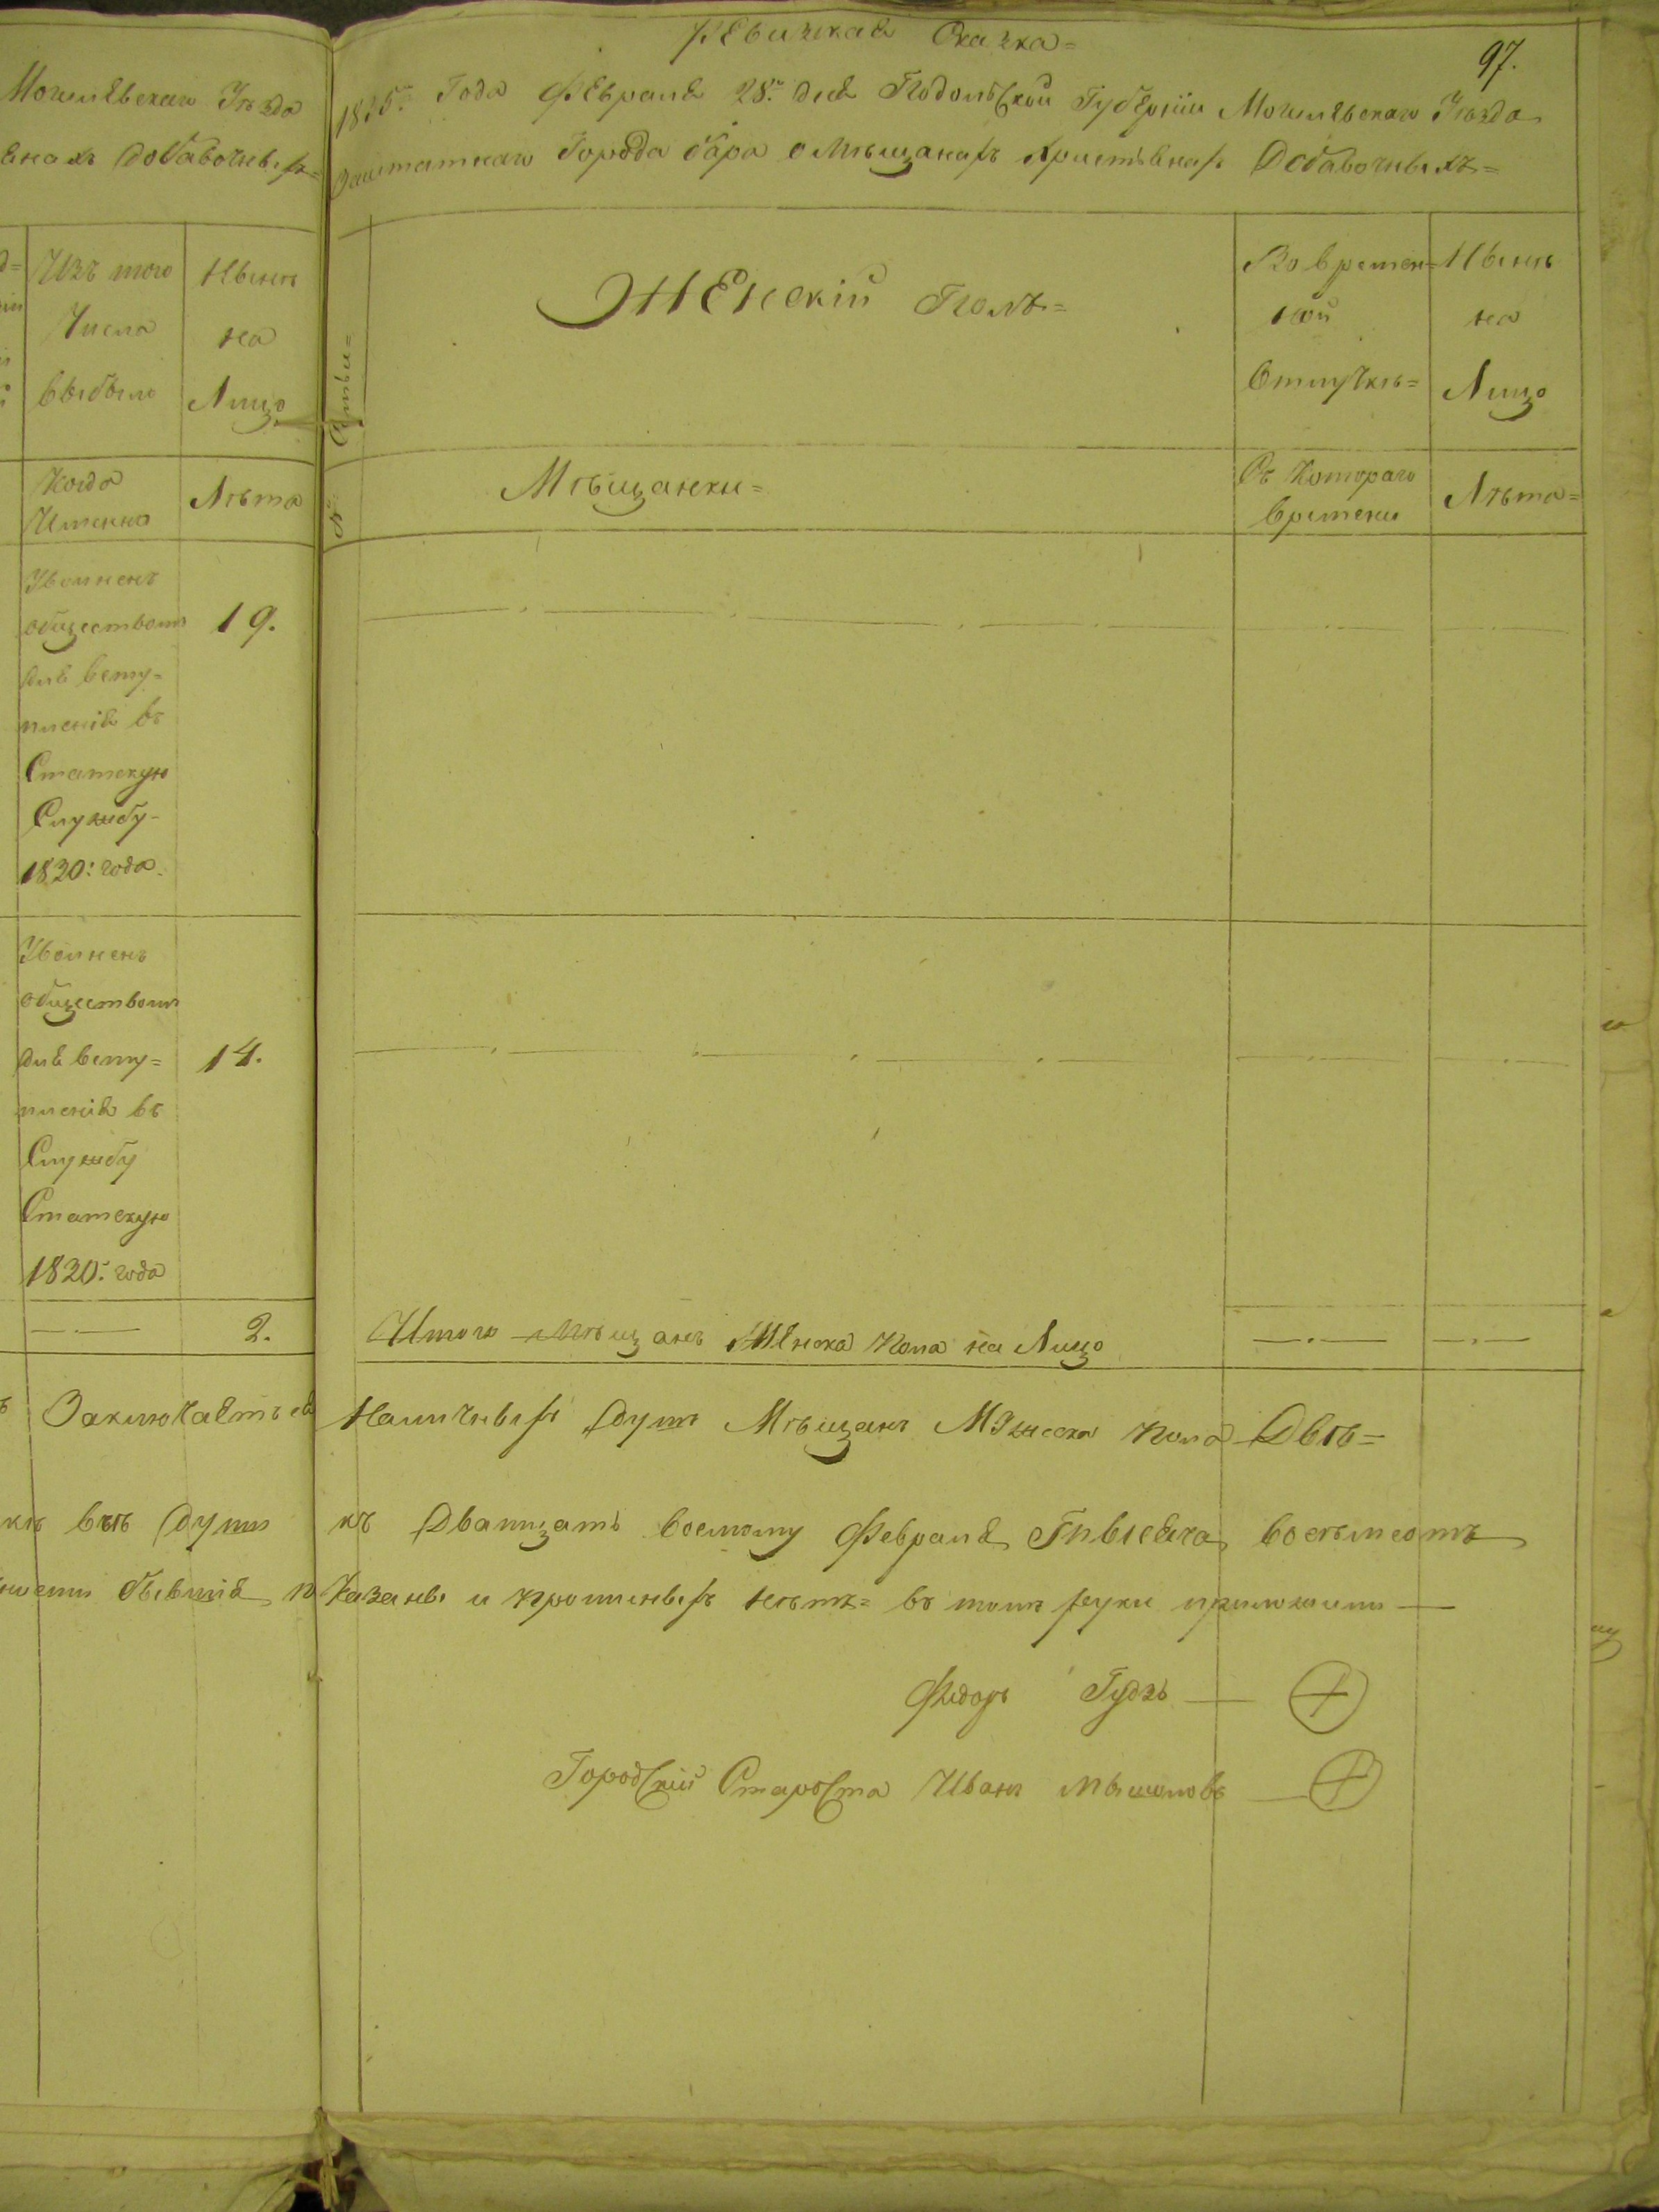 Могилевскаго Уезда
янахъ Добавочныхъ=
Изъ того
Числа
выбыло
Нынѣ
на
Лицо
Когда
Именно
Лѣта
Уволненъ
обществомъ
для всту=
пленія въ
Статскую
Службу-
1820: года.
19.
Уволненъ
обществомъ
для всту=
пленія въ
Службу
Статскую
1820: года
14.
2.
Заключается
всѣ души
бывшія
97.
РЕвизкая Сказка=
1835го Года ФЕвраля 28го дня Подольской Губерніи Могилевскаго Уезда
Заштатнаго Города бара о Мѣщанахъ Христіянахъ Добавочныхъ=
ЖЕнскій Полъ=
Во времен=
ной
Отлучкѣ=
Нынѣ
на
Лицо
Мѣщанки=
Съ Котораго
времени
Лѣта=
Итого Мѣщанъ ЖЕнска Пола на Лицо
Наличныхъ Душъ Мѣщанъ Мужеска Пола Двѣ=
къ Дватцать восмому Февраля Тысяча восемьсотъ
Казаны и прописныхъ нетъ= въ томъ руки приложили
Фидоръ Гудзь
Городскій Староста Иванъ Мышоловъ